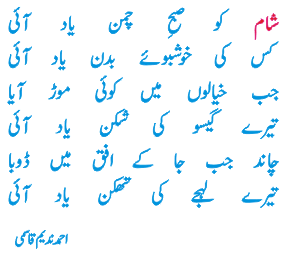 شام کو صبحِ چمن یاد آئی
کس کی خوشبوئے بدن یاد آئی
جب خیالوں میں کوئی موڑ آیا
تیرے گیسو کی شکن یاد آئی
چاند جب جا کے افق میں ڈوبا
تیرے لہجے کی تھکن یاد آئی
احمد ندیم قاسمی